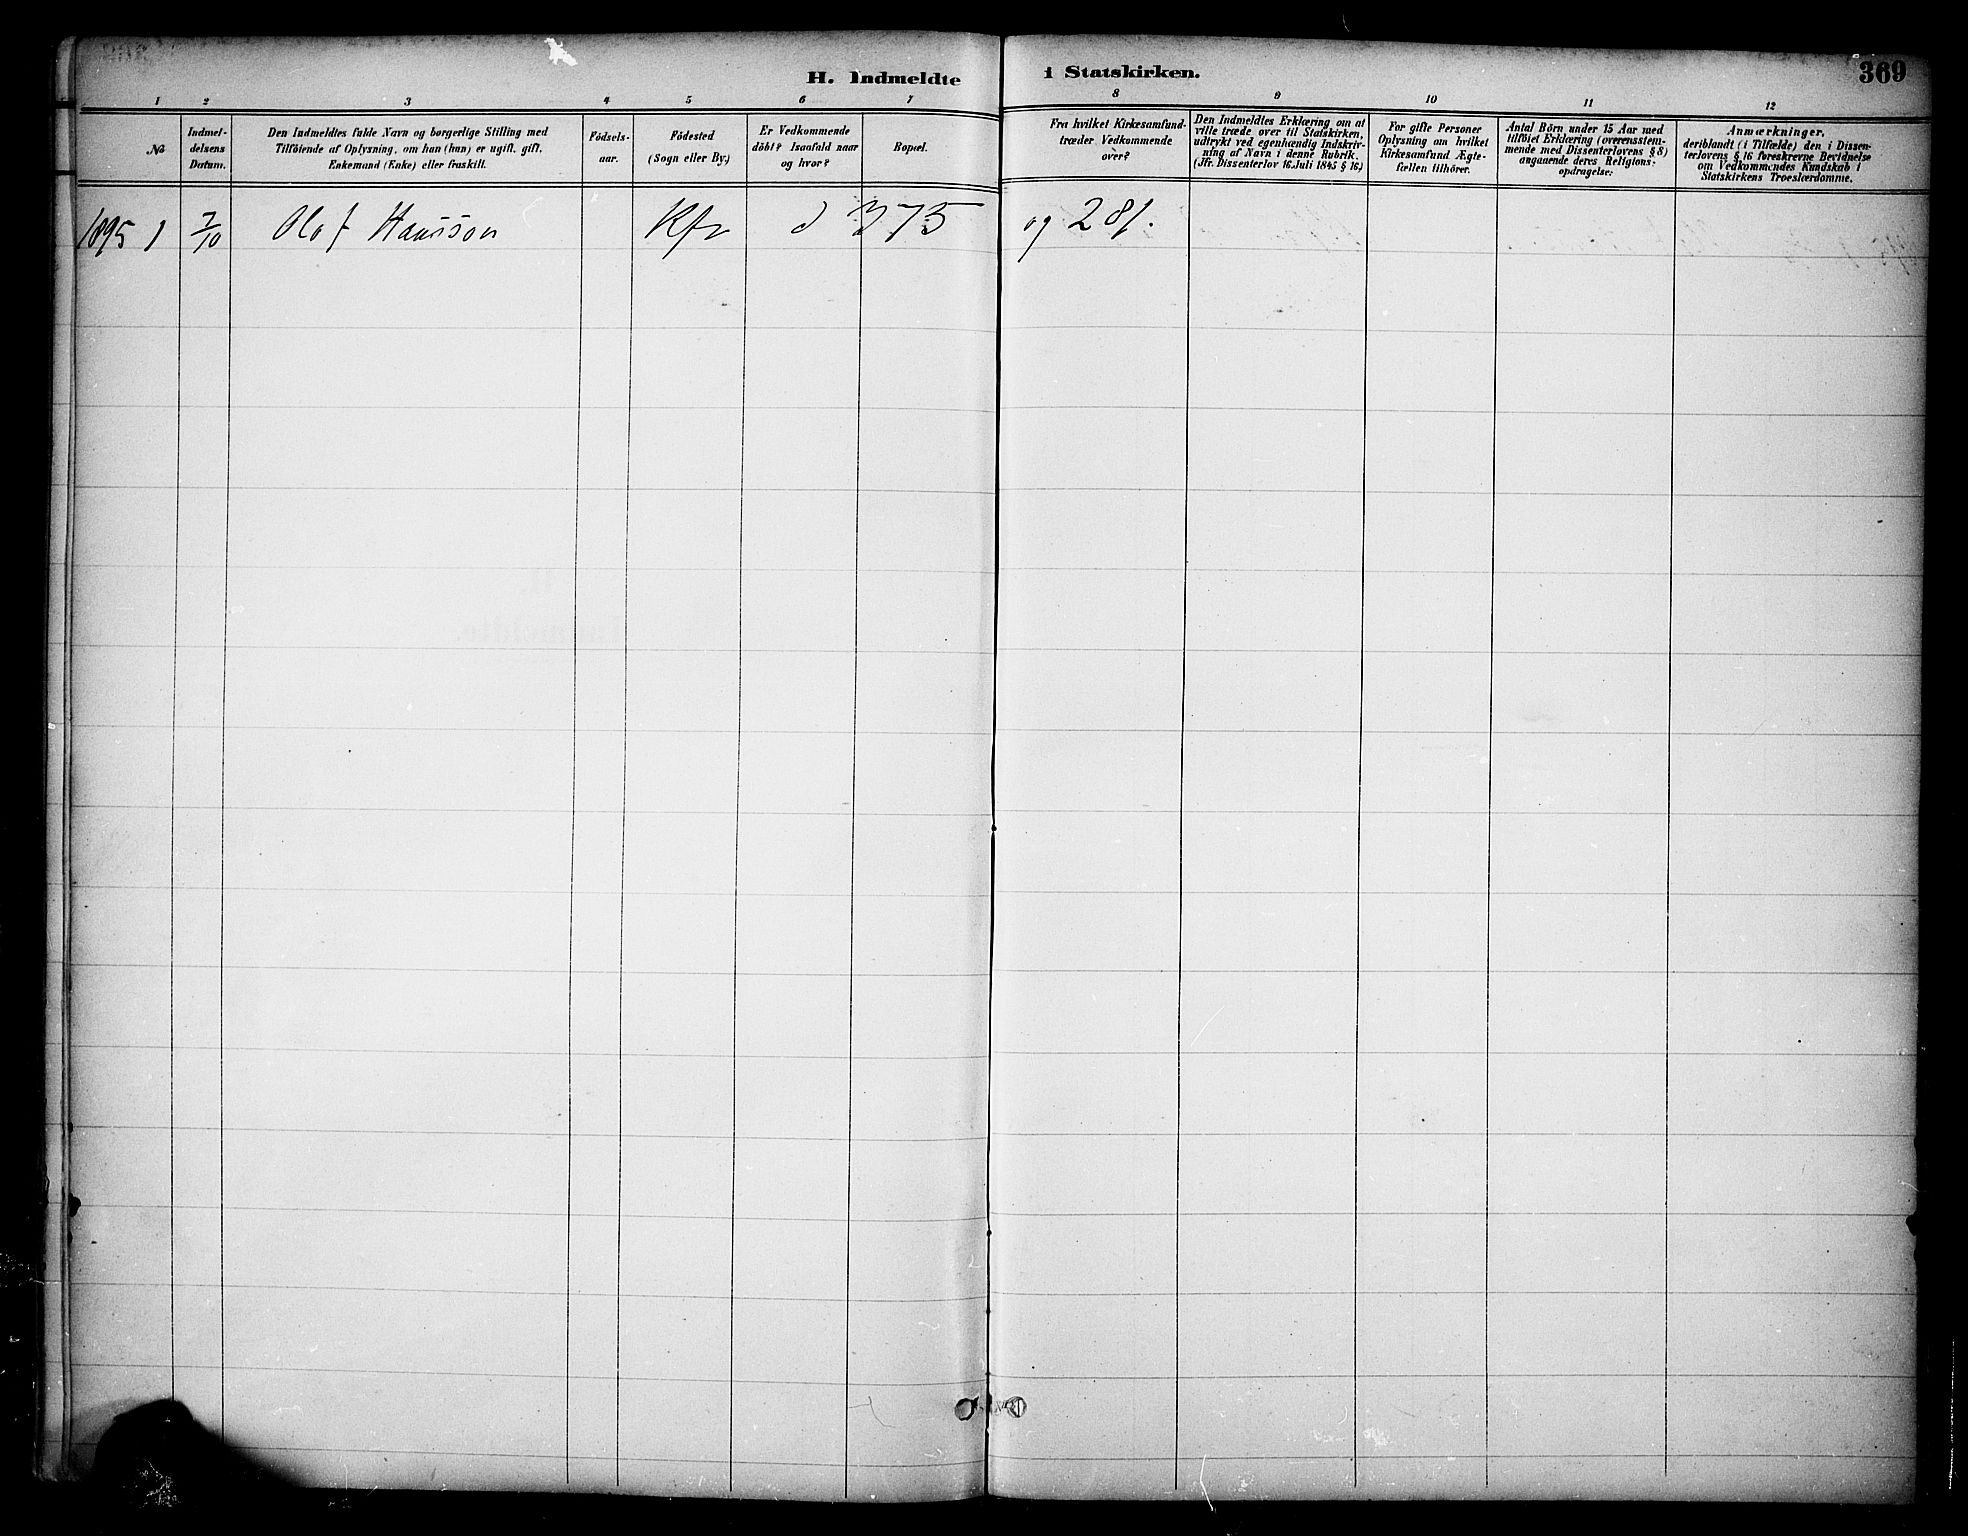 H. Indmeldte i Statskirken.
369
1 2 3 4 5 6 7 8 9 10 11 12
No
Indmel-
delsens
Datum.
Den Indmeldtes fulde Navn og borgerlige Stilling med
Tilföiende af Oplysning, om han (hun) er ugift, gift,
Enkemand (Enke) eller fraskilt.
Födsels-
aar.
Födested
(Sogn eller By.)
Er Vedkommende
döbt? Isaafald naar
og hvor?
Bopæl.
Fra hvilket Kirkesamfund
træder Vedkommende
over?
Den Indmeldtes Erklæring om at
ville træde over til Statskirken,
udtrykt ved egenhændig Indskriv-
ning af Navn i denne Rubrik.
(Jfr. Dissenterlov 16. Juli 1845 § 16.)
For gifte Personer
Oplysning om hvilket
Kirkesamfund Ægte-
fællen tilhörer.
Antal Börn under 15 Aar med
tilföiet Erklæring (overensstem-
mende med Dissenterlovens § 8)
angaaende deres Religions-
opdragelse:
Anmærkninger,
deriblandt (i Tilfælde) den i Dissen-
terlovens § 16 foreskrevne Bevidnelse
om Vedkommendes Kundskab i
Statskirkens Troeslærdomme.
1895 1 7/10 Olaf Hansson Kfr d 375 og 281.